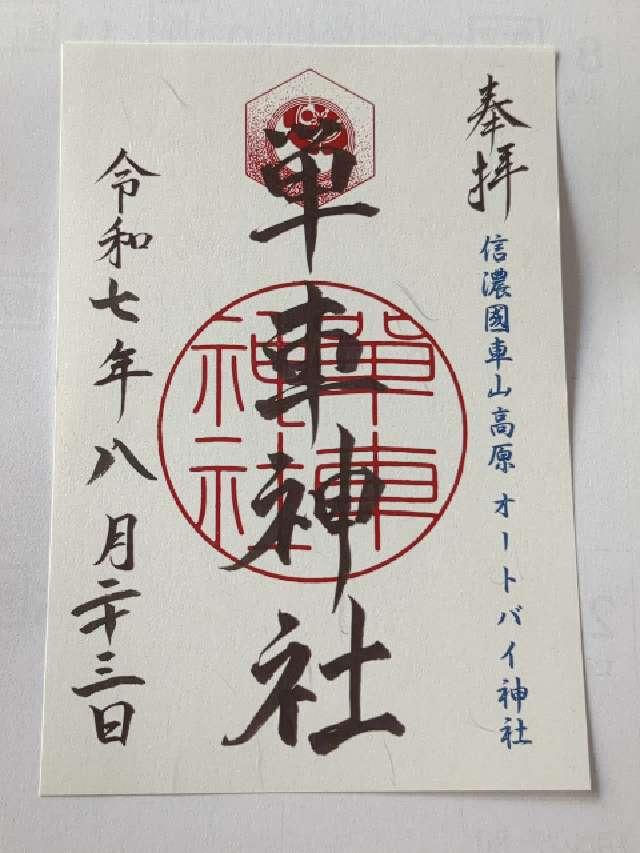 奉拝
信濃國車山高原 オートバイ神社
単車神社
單車神社
令和七年八月二十三日